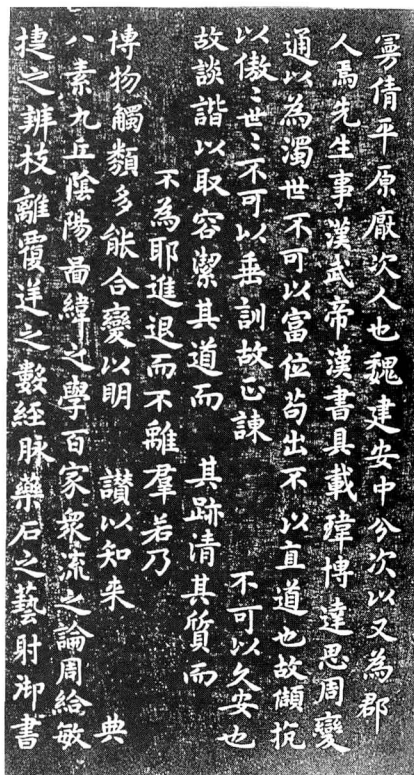 曼倩平原厭次人也魏建安中分次以又為郡
人焉先生事漢武帝漢書具載瑋博達思周變
通以為濁世不可以富位苟出不以直道也故傾抗
以傲〻世〻不可以垂訓故正諫 不可以久安也
故談諧以取容潔其道而 其跡清其質而
不為耶進退而不離羣若乃
博物觸類多能合變以明 讃以知来 典
八素九丘陰陽啚緯之學百家衆流之論周給敏
捷之辨枝離覆逆之數經脉藥石之藝射御書